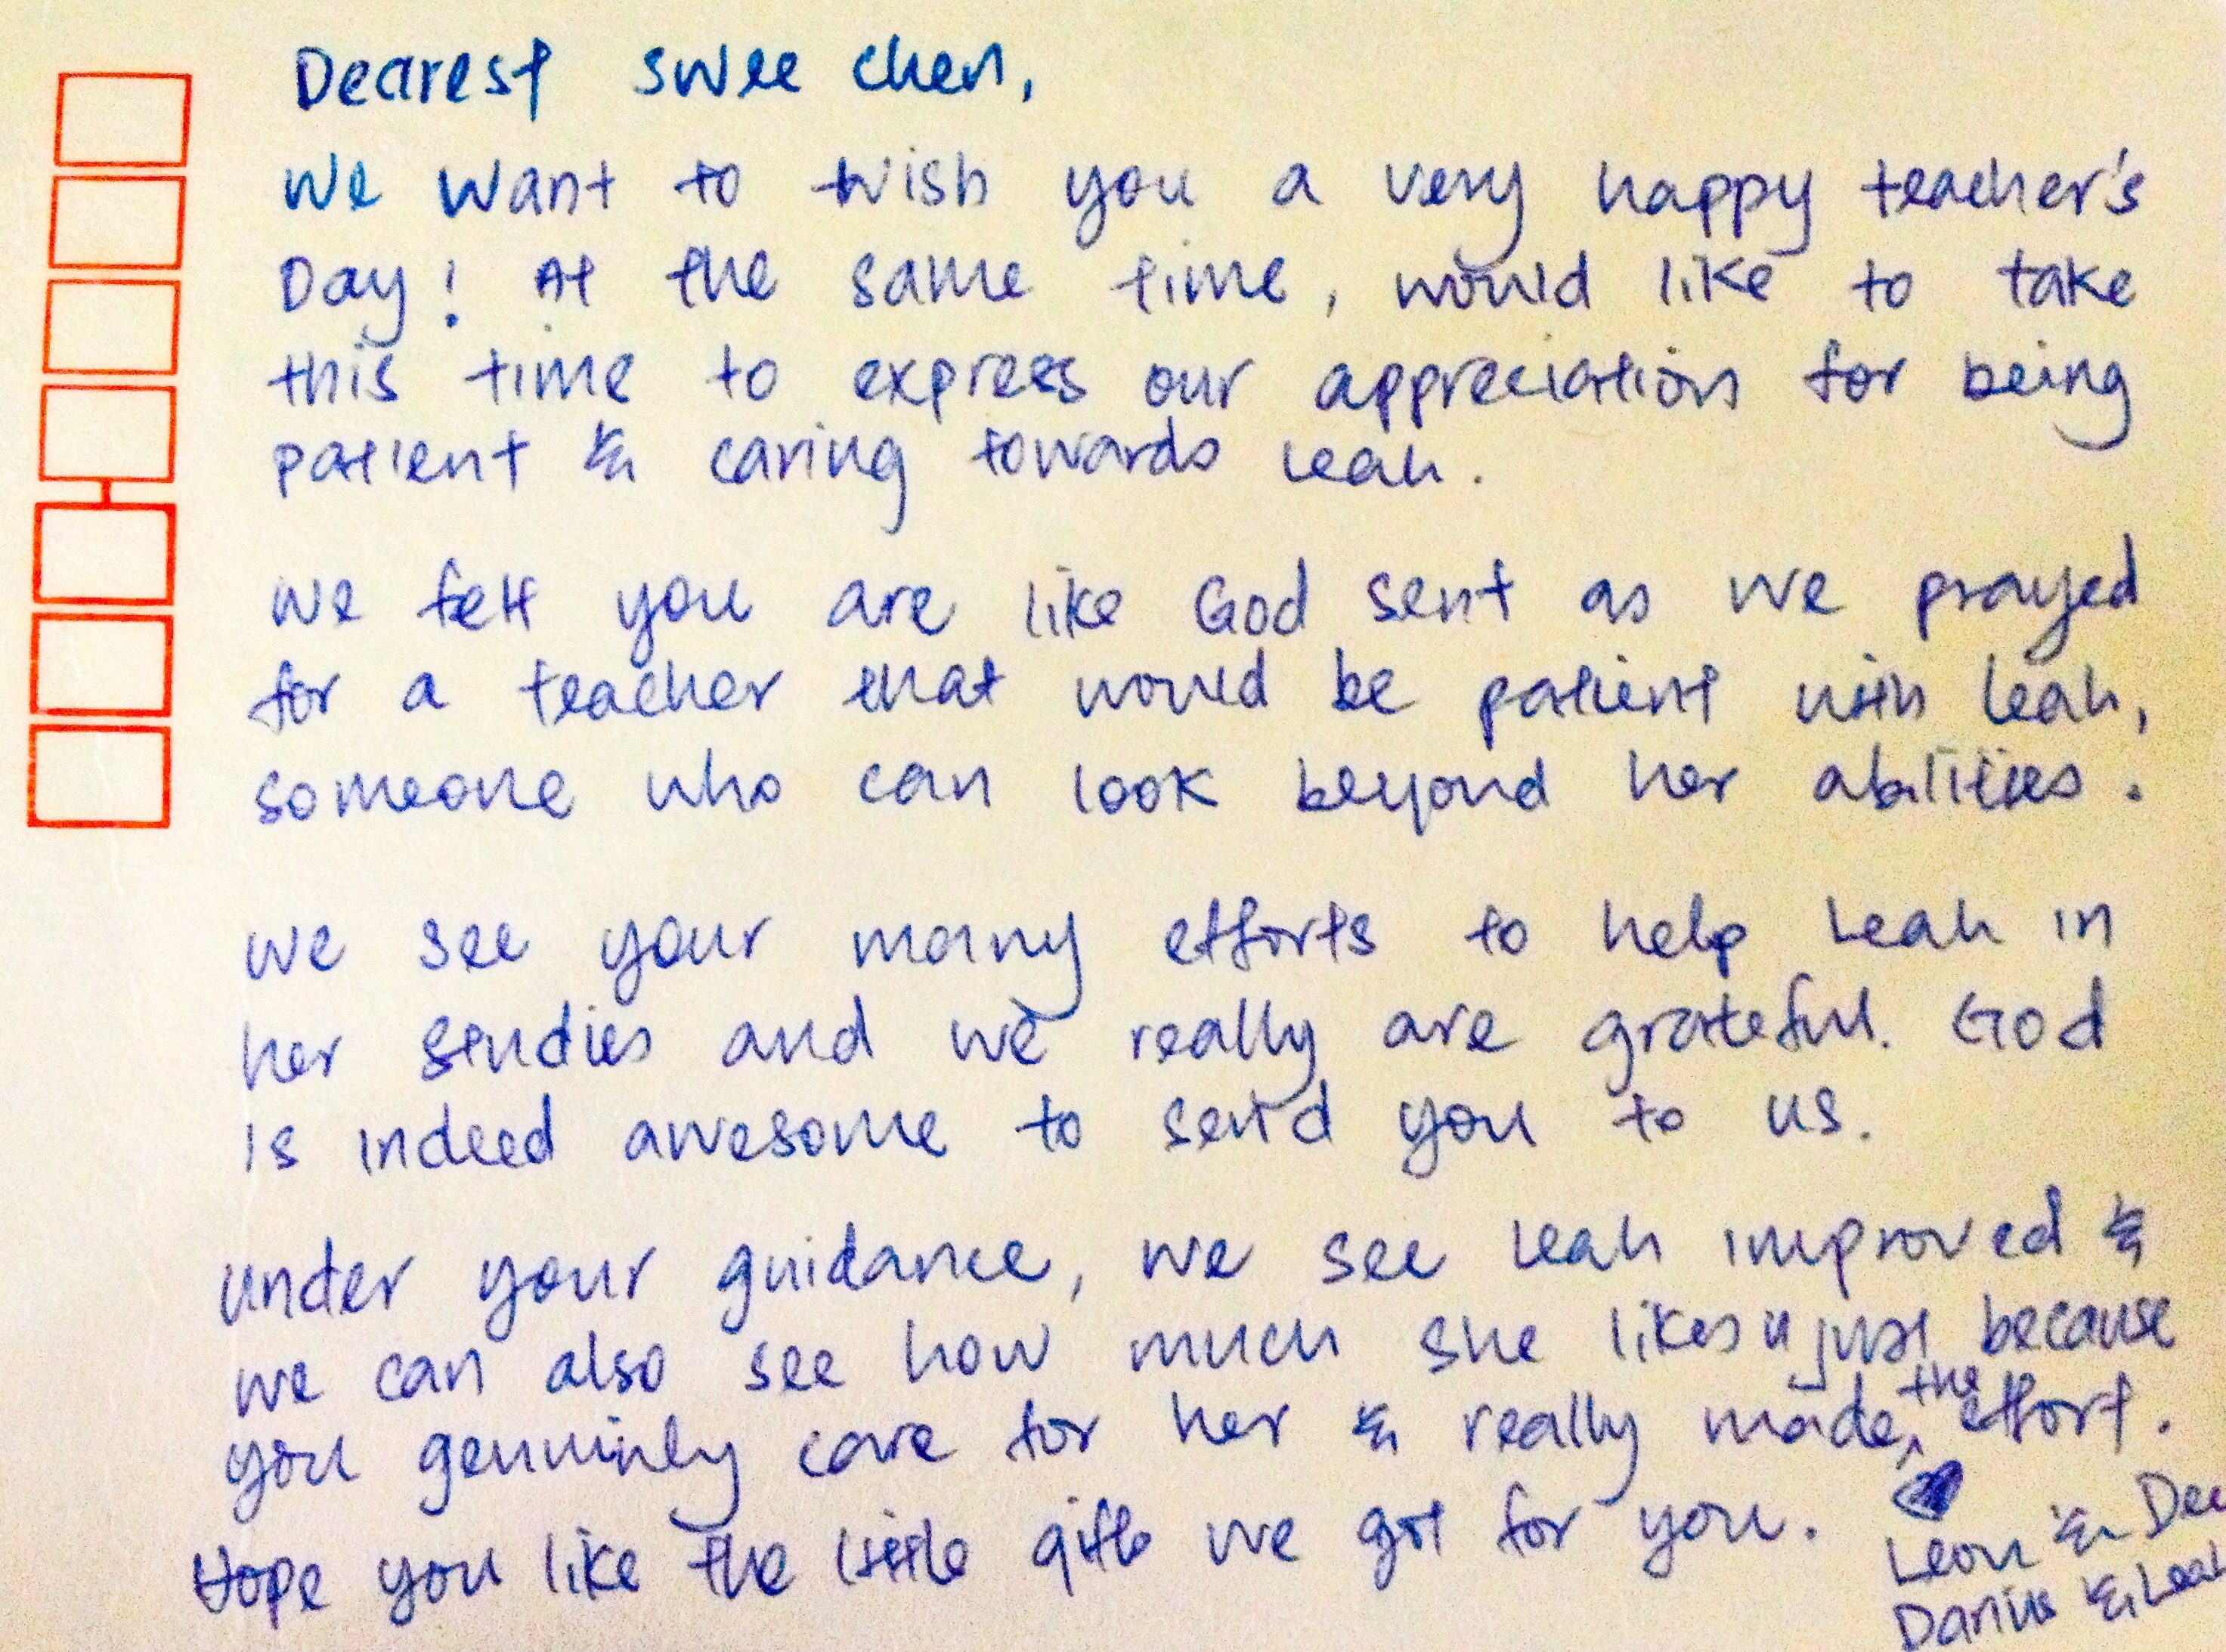 Dearest Swee Chen,
We want to wish you a very happy teacher's
Day! At the same time, would like to take
this time to express our appreciation for being
patient & caring towards Leah.
We felt you are like God sent as we prayed
for a teacher that would be patient with Leah,
someone who can look beyond her abilities.
We see your many efforts to help Leah in
her studies and we really are grateful. God
is indeed awesome to send you to us.
Under your guidance, we see Leah improved &
we can also see how much she likes u just because
you genuinly care for her & really made the effort.
Hope you like the little gifts we got for you.
Leon & Dee
Darius & Leah